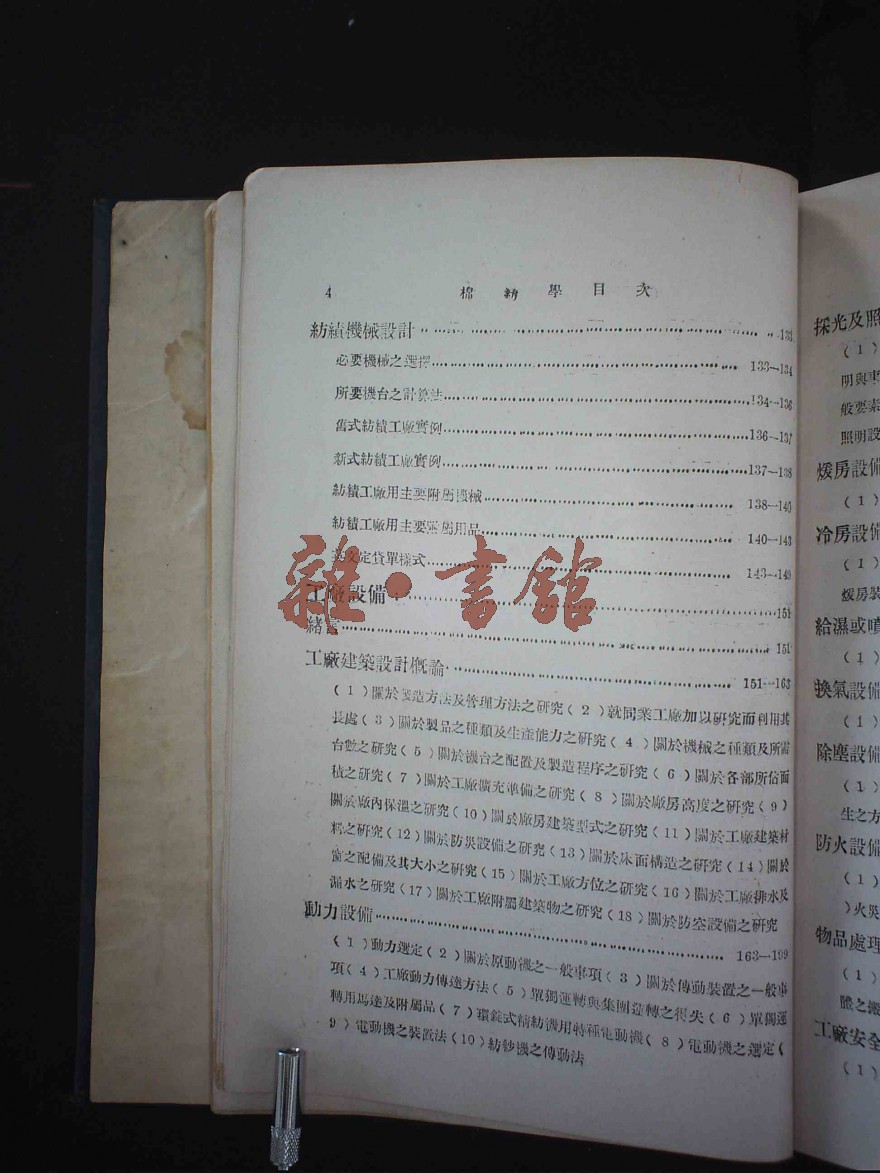 4 棉紡學目次
紡績機械設計 133
必要機械之選擇 133—134
所要機台之計算法 134—136
舊式紡績工廠實例 136—137
新式紡績工廠實例 137—138
紡績工廠用主要附屬機械 138—140
紡績工廠用主要 屬用品 140—143
英文定貨單樣式 143—149
工廠設備 151
緒言 151
工廠建築設計概論 151—163
(1)關於製造方法及管理方法之研究(2)就同業工廠加以研究而利用其
長處(3)關於製品之種類及生產能力之研究(4)關於機械之種類及所需
台數之研究(5)關於機台之配置及製造程序之研究(6)關於各部所佔面
積之研究(7)關於工廠擴充準備之研究(8)關於廠房高度之研究(9)
關於廠內保溫之研究(10)關於廠房建築型式之研究(11)關於工廠建築材
料之研究(12)關於防災設備之研究(13)關於床面構造之研究(14)關於
窗之配備及其大小之研究(15)關於工廠方位之研究(16)關於工廠排水及
漏水之研究(17)關於工廠附屬建築物之研究(18)關於防空設備之研究
動力設備 163—199
(1)動力選定(2)關於原動機之一般事項(3)關於傳動裝置之一般事
項(4)工廠動力傳達方法(5)單獨運轉與集團運轉之得失(6)單獨運
轉用馬達及附屬品(7)環錠式精紡機用特種電動機(8)電動機之選定(
9)電動機之裝置法(10)紡紗機之傳動法
雜·書館
採光及照
(1)
明與事
般要素
照明設
煖房設備
(1)
冷房設備
(1)
煖房裝
給濕或噴
(1)
換氣設備
(1)
除塵設備
(1)
生之方
防火設備
(1)
)火災
物品處理
(1)
之搬
工廠安全
(1)